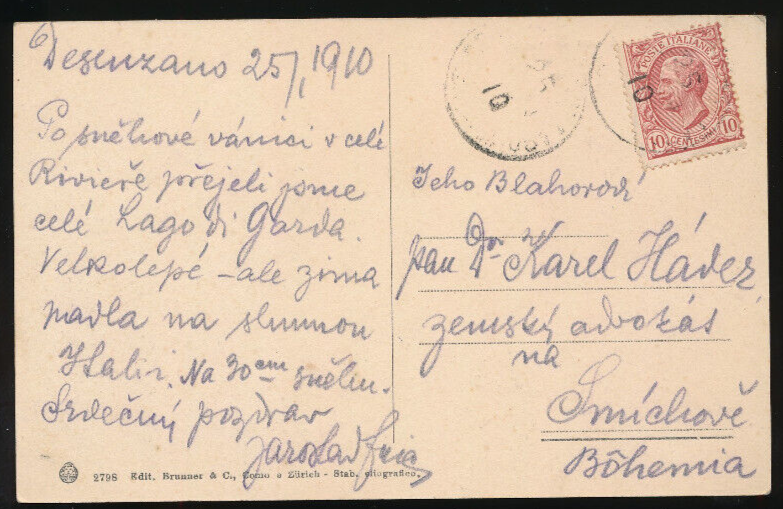 Desenzano 25/1, 1910
Po sněhové vánici v celé
Rivieře přejeli jsme
celé Lago di Garda.
Velkolepé - ale zima
padla na slunnou
Italii. Na 30 cm sněhu.
Srdečný pozdrav
Jaroslav
2798 Edit. Brunner & C., Como e Zürich - Stab. eliografico.
POSTE ITALIANE
10 CENTESIMI 10
10
10
Jeho Blahorodí
pan Dr. Karel Hádez
zemský advokát
na
Smíchově
Bôhemia